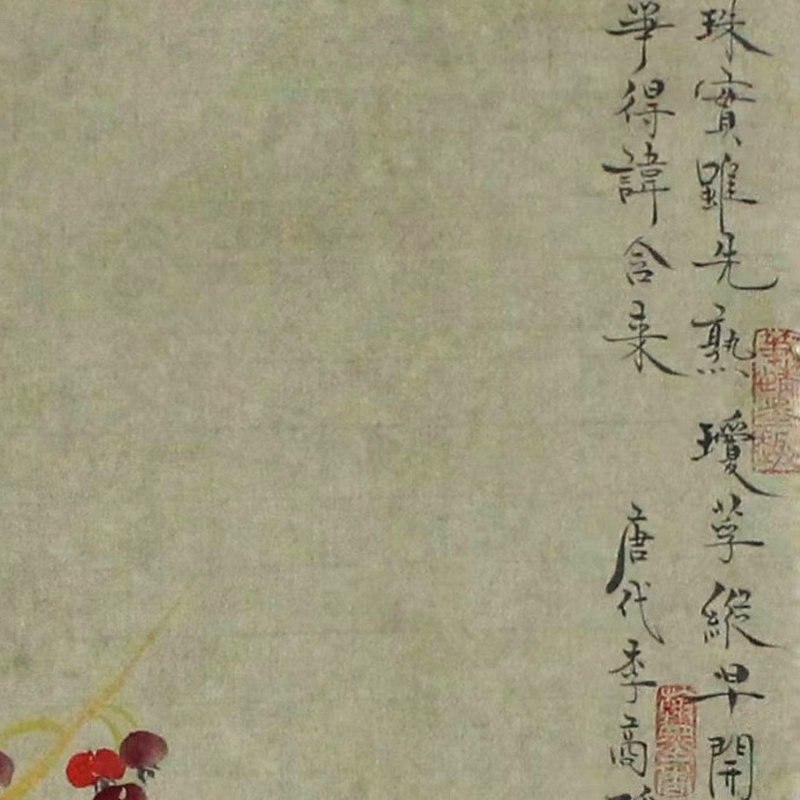 珠實雖先熟 瓊莩縱早開
爭得諱含来 唐代李商